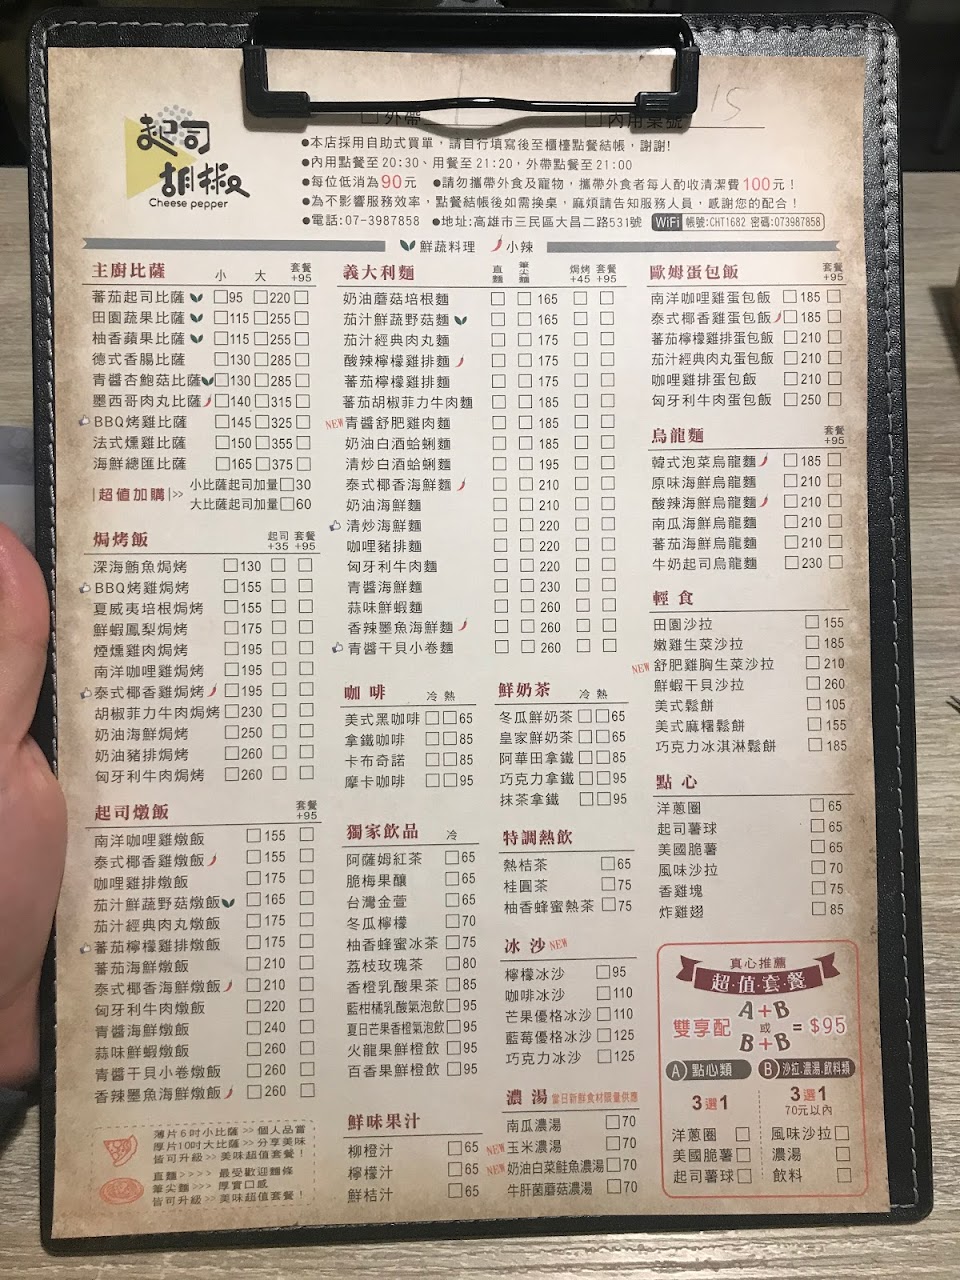 外帶 內用桌號 15
起司
胡椒
Cheese pepper
●本店採用自助式買單，請自行填寫後至櫃檯點餐結帳，謝謝!
●內用點餐至20:30、用餐至21:20，外帶點餐至21:00
●每位低消為90元 ●請勿攜帶外食及寵物，攜帶外食者每人酌收清潔費100元！
●為不影響服務效率，點餐結帳後如需換桌，麻煩請告知服務人員，感謝您的配合！
●電話:07-3987858 ●地址:高雄市三民區大昌二路531號 WiFi 帳號:CHT1682 密碼:073987858
鮮蔬料理 小辣
主廚比薩 小 大 套餐+95
蕃茄起司比薩 95 220
田園蔬果比薩 115 255
柚香蘋果比薩 115 255
德式香腸比薩 130 285
青醬杏鮑菇比薩 130 285
墨西哥肉丸比薩 140 315
BBQ烤雞比薩 145 325
法式燻雞比薩 150 355
海鮮總匯比薩 165 375
超值加購>> 小比薩起司加量 30
大比薩起司加量 60
焗烤飯 起司+35 套餐+95
深海鮪魚焗烤 130
BBQ烤雞焗烤 155
夏威夷培根焗烤 155
鮮蝦鳳梨焗烤 175
煙燻雞肉焗烤 195
南洋咖哩雞焗烤 195
泰式椰香雞焗烤 195
胡椒菲力牛肉焗烤 230
奶油海鮮焗烤 250
奶油豬排焗烤 260
匈牙利牛肉焗烤 260
起司燉飯 套餐+95
南洋咖哩雞燉飯 155
泰式椰香雞燉飯 155
咖哩雞排燉飯 175
茄汁鮮蔬野菇燉飯 165
茄汁經典肉丸燉飯 175
蕃茄檸檬雞排燉飯 175
蕃茄海鮮燉飯 210
泰式椰香海鮮燉飯 210
匈牙利牛肉燉飯 220
青醬海鮮燉飯 240
蒜味鮮蝦燉飯 260
青醬干貝小卷燉飯 260
香辣墨魚海鮮燉飯 260
薄片6吋小比薩>>個人品嘗
厚片10吋大比薩>>分享美味
皆可升級>>美味超值套餐！
直麵>>>> 最受歡迎麵條
筆尖麵>>> 厚實口感
皆可升級>>美味超值套餐！
義大利麵 直麵 筆尖麵 焗烤+45 套餐+95
奶油蘑菇培根麵 165
茄汁鮮蔬野菇麵 165
茄汁經典肉丸麵 175
酸辣檸檬雞排麵 175
蕃茄檸檬雞排麵 175
蕃茄胡椒菲力牛肉麵 185
NEW 青醬舒肥雞肉麵 185
奶油白酒蛤蜊麵 185
清炒白酒蛤蜊麵 195
泰式椰香海鮮麵 210
奶油海鮮麵 210
清炒海鮮麵 220
咖哩豬排麵 220
匈牙利牛肉麵 220
青醬海鮮麵 230
蒜味鮮蝦麵 260
香辣墨魚海鮮麵 260
青醬干貝小卷麵 260
咖啡 冷 熱
美式黑咖啡 65
拿鐵咖啡 85
卡布奇諾 85
摩卡咖啡 95
獨家飲品 冷
阿薩姆紅茶 65
脆梅果釀 65
台灣金萱 65
冬瓜檸檬 70
柚香蜂蜜冰茶 75
荔枝玫瑰茶 80
香橙乳酸果茶 85
藍柑橘乳酸氣泡飲 95
夏日芒果香橙氣泡飲 95
火龍果鮮橙飲 95
百香果鮮橙飲 95
鮮味果汁
柳橙汁 65
檸檬汁 65
鮮桔汁 65
鮮奶茶 冷 熱
冬瓜鮮奶茶 65
皇家鮮奶茶 65
阿華田拿鐵 85
巧克力拿鐵 95
抹茶拿鐵 95
特調熱飲
熱桔茶 65
桂圓茶 75
柚香蜂蜜熱茶 75
冰沙 NEW
檸檬冰沙 95
咖啡冰沙 110
芒果優格冰沙 110
藍莓優格冰沙 125
巧克力冰沙 125
濃湯 當日新鮮食材限量供應
南瓜濃湯 70
NEW 玉米濃湯 70
NEW 奶油白菜鮭魚濃湯 70
牛肝菌蘑菇濃湯 70
歐姆蛋包飯 套餐+95
南洋咖哩雞蛋包飯 185
泰式椰香雞蛋包飯 185
蕃茄檸檬雞排蛋包飯 210
茄汁經典肉丸蛋包飯 210
咖哩雞排蛋包飯 210
匈牙利牛肉蛋包飯 250
烏龍麵 套餐+95
韓式泡菜烏龍麵 185
原味海鮮烏龍麵 210
酸辣海鮮烏龍麵 210
南瓜海鮮烏龍麵 210
蕃茄海鮮烏龍麵 210
牛奶起司烏龍麵 230
輕食
田園沙拉 155
嫩雞生菜沙拉 185
NEW 舒肥雞胸生菜沙拉 210
鮮蝦干貝沙拉 260
美式鬆餅 105
美式麻糬鬆餅 155
巧克力冰淇淋鬆餅 185
點心
洋蔥圈 65
起司薯球 65
美國脆薯 65
風味沙拉 70
香雞塊 75
炸雞翅 85
真心推薦
超·值·套·餐
雙享配 A+B 或 B+B =$95
A 點心類 B 沙拉.濃湯.飲料類
3選1 3選1
70元以內
洋蔥圈 風味沙拉
美國脆薯 濃湯
起司薯球 飲料